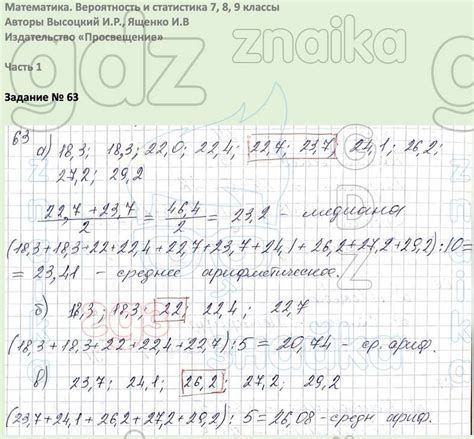 Математика. Вероятность и статистика 7, 8, 9 классы
Авторы Высоцкий И.Р., Ященко И.В
Издательство «Просвещение»
Часть 1
Задание № 63
gdz znaika
63
а) 18,3; 18,3; 22,0; 22,4; 22,7; 23,7; 24,1; 26,2;
27,2; 29,2
22,7 + 23,7 / 2 = 46,4 / 2 = 23,2 - медиана
(18,3+18,3+22+22,4+22,7+23,7+24,1+26,2+27,2+29,2):10=
= 23,41 - среднее арифметическое.
б) 18,3; 18,3; 22; 22,4; 22,7
(18,3+18,3+22+22,4+22,7):5 = 20,74 - ср. ариф.
в) 23,7; 24,1; 26,2; 27,2; 29,2
(23,7+24,1+26,2+27,2+29,2): 5=26,08 - средн. ариф.